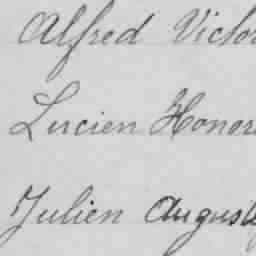 Alfred Victor
Lucien Honoré
Julien Auguste